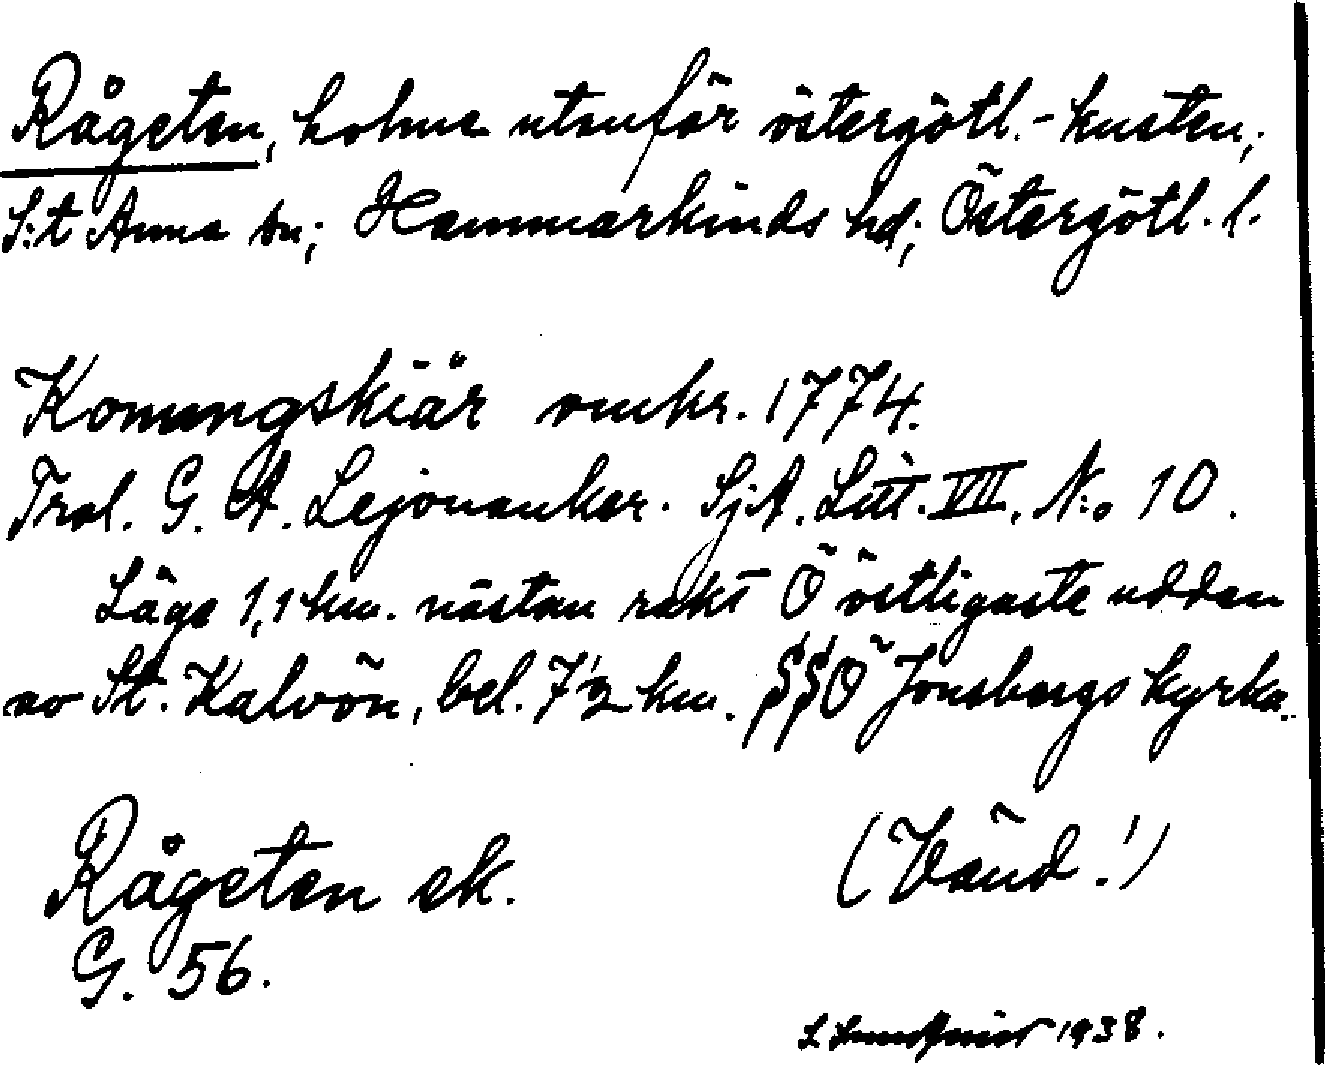 Rågeten, holme utanför östergötl.-kusten;
S:t Anna sn; Hammarkinds hd; Östergötl. l.
Konungskiär omkr. 1774.
Trol. G. A. Lejonanker. Sj.A. Litt. VII. N:o 10.
Läge 1,1 km. nästan rakt Ö östligaste udden
av St. Kalvön, bel. 7½ km. SSÖ Jonsbergs kyrka.
Rågeten ek. (Vänd!)
G. 56.
1938.